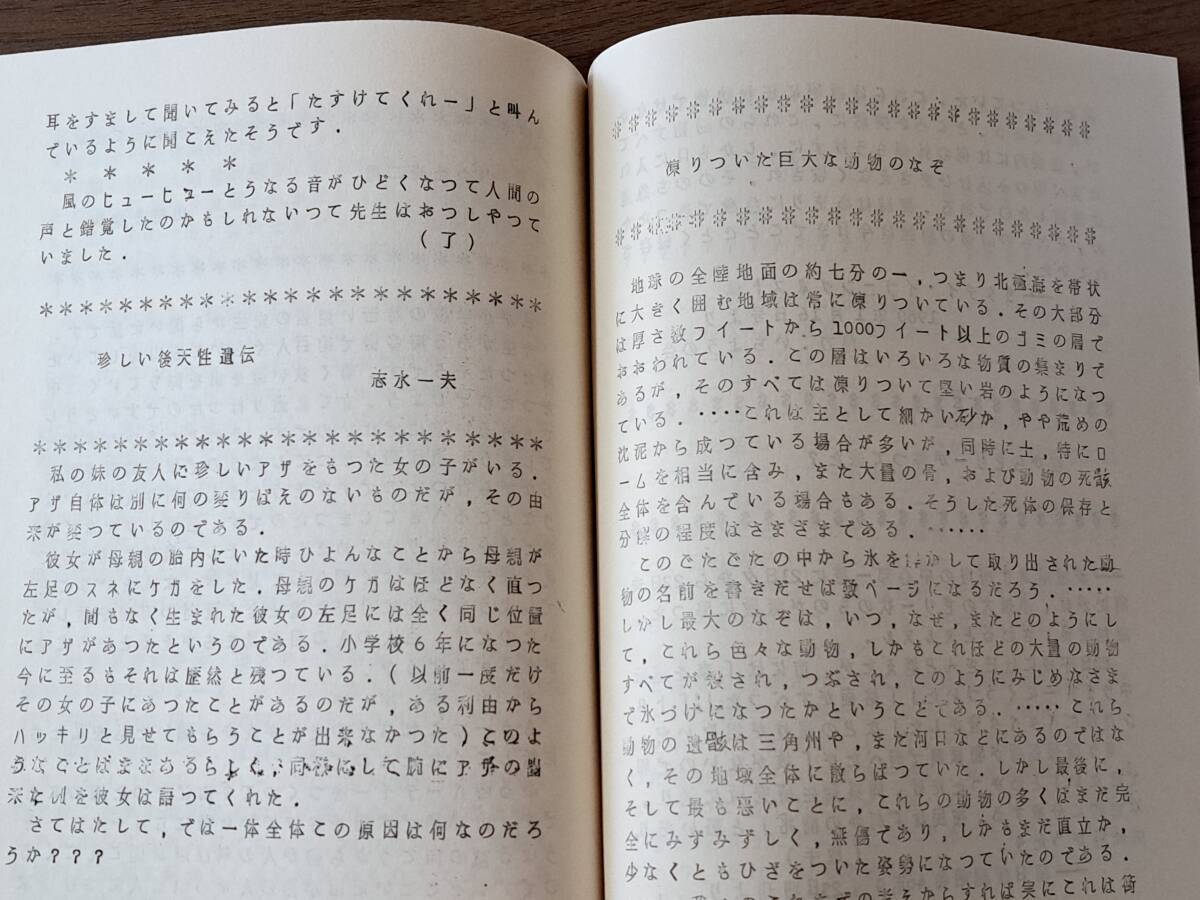 耳をすまして聞いてみると「たすけてくれー」と叫ん
でいるように聞こえたそうです．
＊　＊　＊　＊
風のヒューヒューとうなる音がひどくなつて人間の
声と錯覚したのかもしれないつて先生はおつしやつて
いました．
（了）
＊＊＊＊＊＊＊＊＊＊＊＊＊＊＊＊＊＊＊＊＊＊＊＊＊
珍しい後天性遺伝
志水一夫
＊＊＊＊＊＊＊＊＊＊＊＊＊＊＊＊＊＊＊＊＊＊＊＊＊
私の妹の友人に珍しいアザをもつた女の子がいる．
アザ自体は別に何の変りばえのないものだが，その由
来が変つているのである．
彼女が母親の胎内にいた時ひよんなことから母親が
左足のスネにケガをした．母親のケガはほどなく直つ
たが，間もなく生まれた彼女の左足には全く同じ位置
にアザがあつたというのである．小学校６年になつた
今に至るもそれは歴然と残つている．（以前一度だけ
その女の子にあつたことがあるのだが，ある利由から
ハッキリと見せてもらうことが出来なかつた）このよ
うなことはままあるらしく，同様にして腕にアザの
を彼女は語つてくれた．
さてはたして，では一体全体この原因は何なのだろ
うか？？？
＊＊＊＊＊＊＊＊＊＊＊＊＊＊＊＊＊＊＊＊＊＊＊＊
凍りついた巨大な動物のなぞ
＊＊＊＊＊＊＊＊＊＊＊＊＊＊＊＊＊＊＊＊＊＊＊＊
地球の全陸地面の約七分の一，つまり北極海を帯状
に大きく囲む地域は常に凍りついている．その大部分
は厚さ数フイートから1000フイート以上のゴミの層で
おおわれている．この層はいろいろな物質の集まりで
あるが，そのすべては凍りついて堅い岩のようになつ
ている．‥‥‥これは主として細かい砂か，やや荒めの
沈泥から成つている場合が多いが，同時に土，特にロ
ームを相当に含み，また大量の骨，および動物の死骸
全体を含んでいる場合もある．そうした死体の保存と
分解の程度はさまざまである．‥‥‥
このごたごたの中から氷を溶かして取り出された動
物の名前を書きだせば数ページになるだろう．‥‥‥
しかし最大のなぞは，いつ，なぜ，またどのようにし
て，これら色々な動物，しかもこれほどの大量の動物
すべてが殺され，つぶされ，このようにみじめなさま
で氷づけになつたかということである．‥‥‥これら
動物の遺骸は三角州や，また河口などにあるのではな
く，その地域全体に散らばつていた．しかし最後に，
そして最も悪いことに，これらの動物の多くはまだ完
全にみずみずしく，無傷であり，しかもまだ直立か，
少なくともひざをついた姿勢になつていたのである．